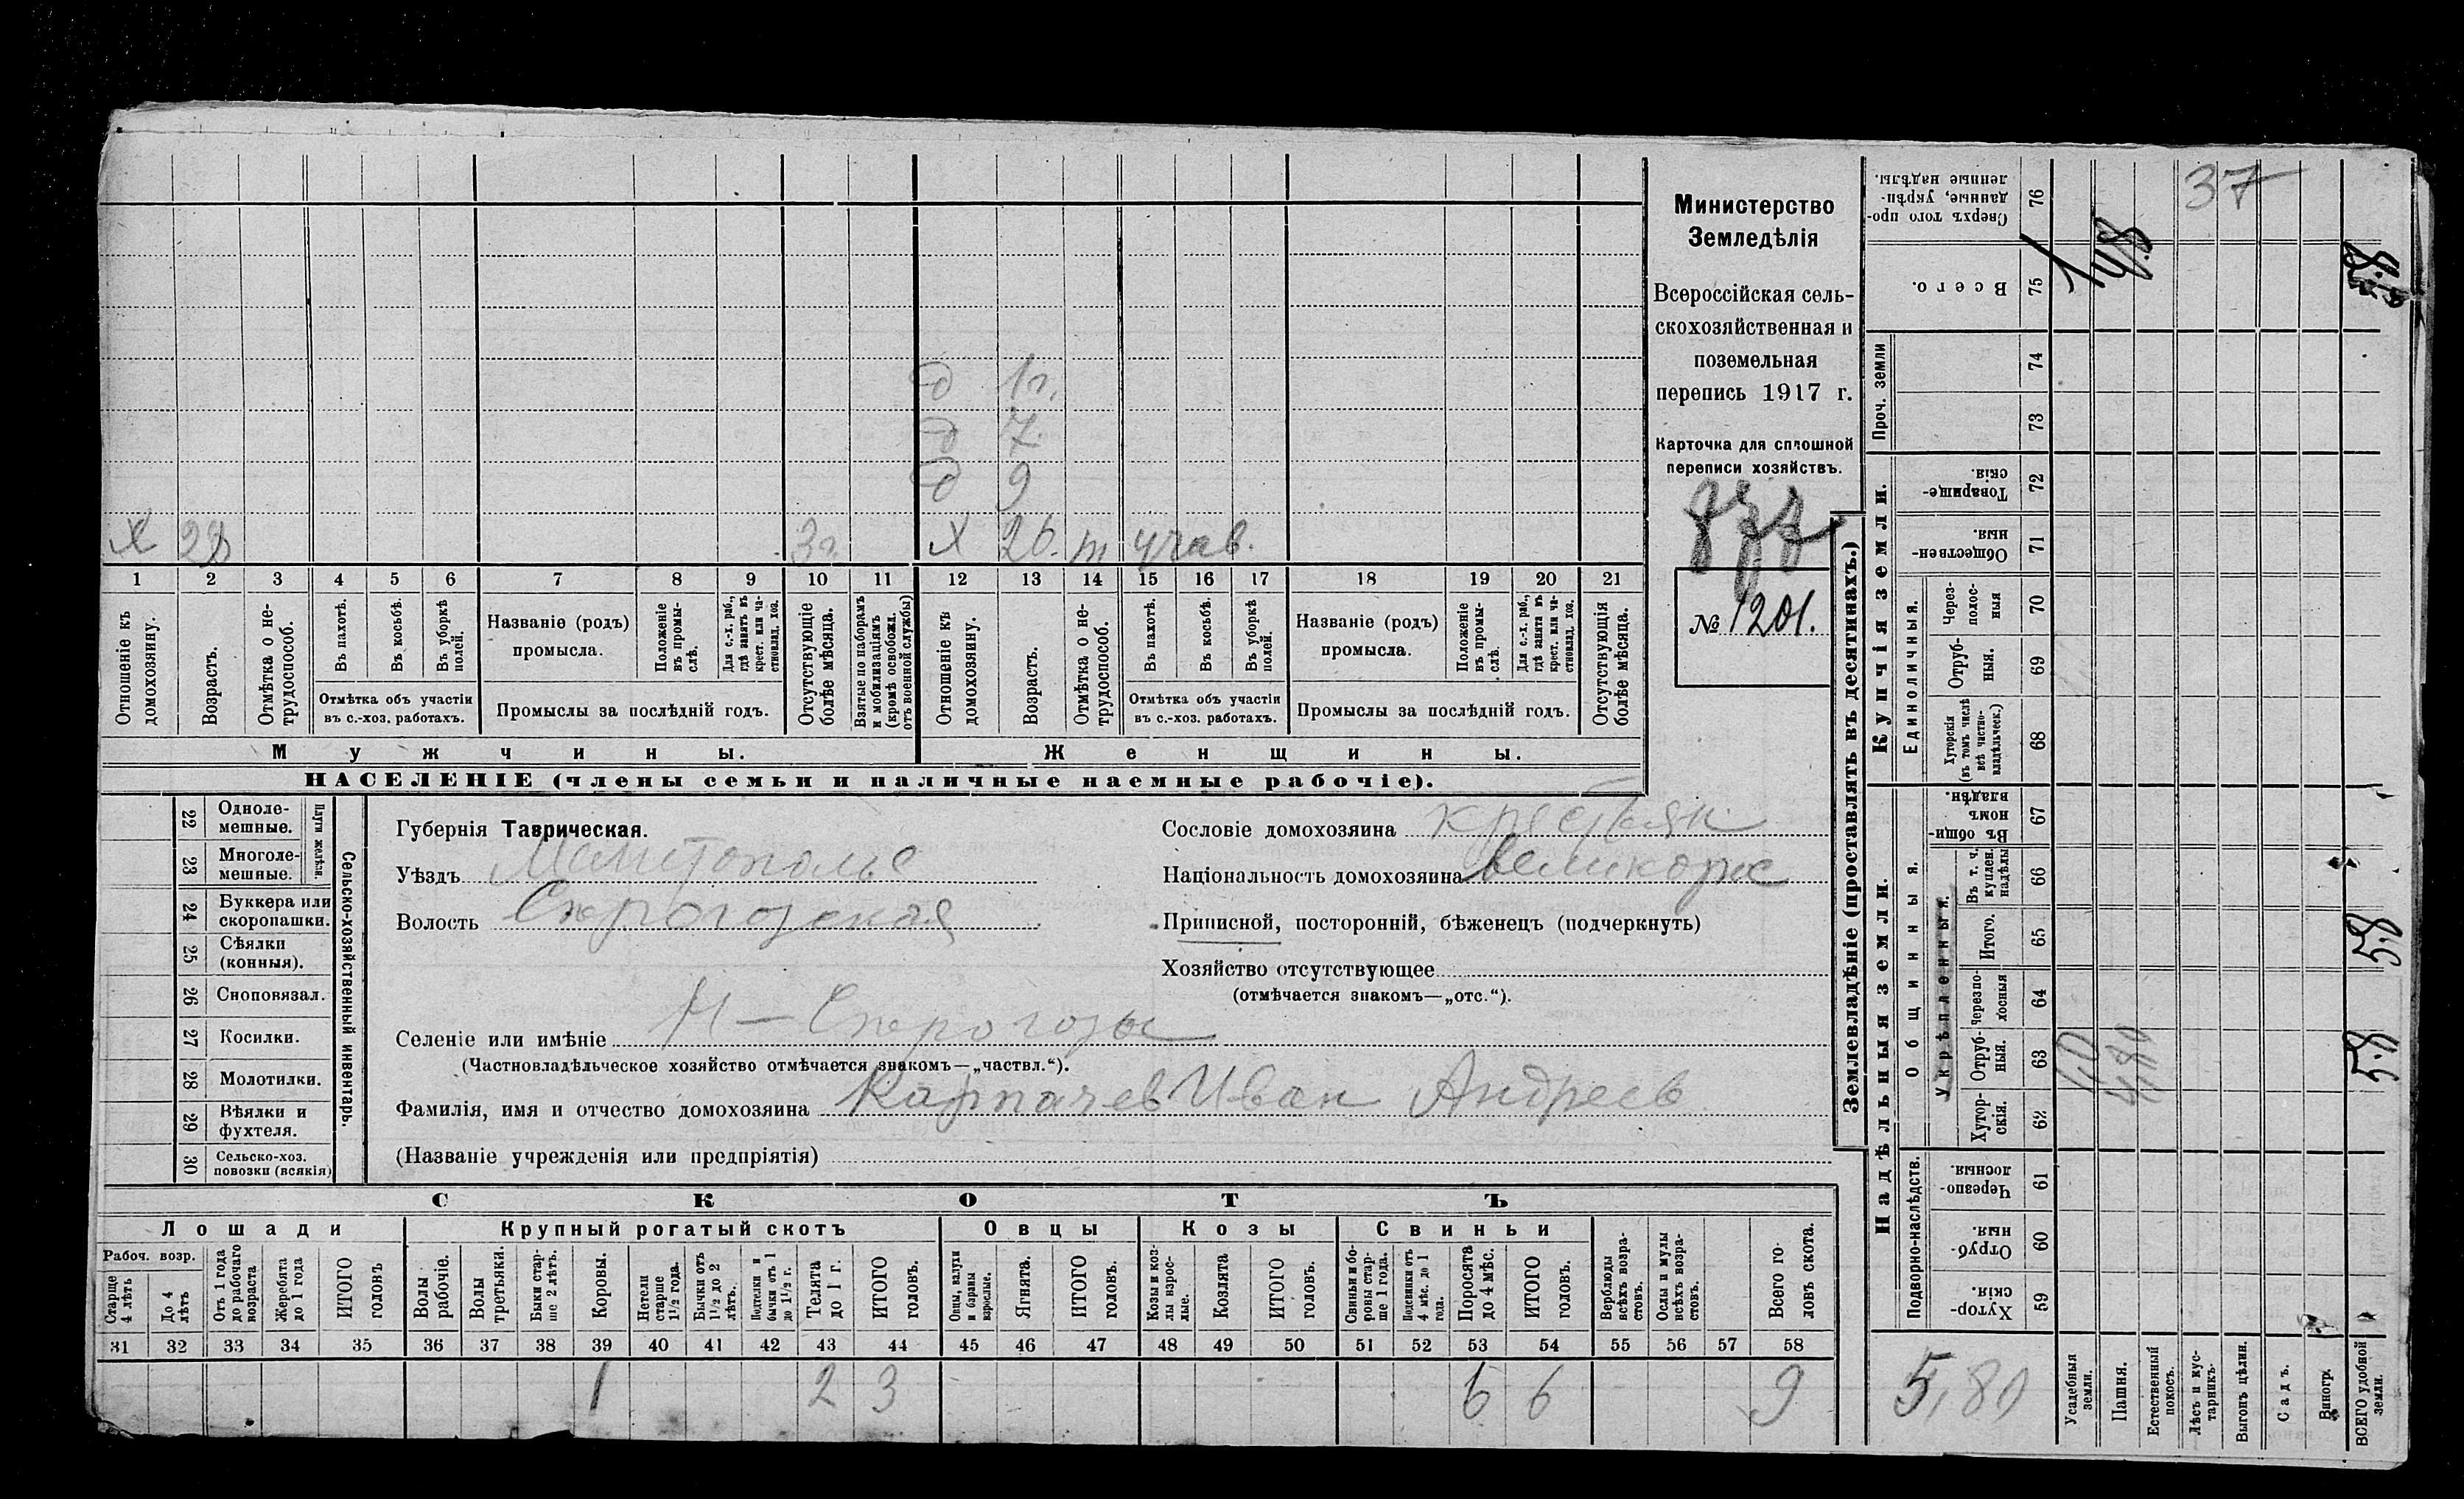 д 1г.
д 7
д 9
х 28 3г. х 26. т участв.
1 2 3 4 5 6 7 8 9 10 11 12 13 14 15 16 17 18 19 20 21
Отношеніе къ домохозяину.
Возрасть.
Отмѣтка о не-трудоспособ.
Въ пахотѣ.
Въ косьбѣ.
Въ уборкѣ полей.
Отмѣтка объ участіи
въ с.-хоз. работахъ.
Названіе (родъ)
промысла.
Положеніе въ промы-слѣ.
Для с.-х. раб., гдѣ занятъ въ крест. или ча-стновлад. хоз.
Промыслы за послѣдній годъ.
Отсутствующіе болѣе мѣсяца.
Взятые по наборамъ и мобилизаціямъ (кромѣ освобожд. отъ военной службы)
Отношеніе къ домохозяину.
Возрасть.
Отмѣтка о не-трудоспособ.
Въ пахотѣ.
Въ косьбѣ.
Въ уборкѣ полей.
Отмѣтка объ участіи
въ с.-хоз. работахъ.
Названіе (родъ)
промысла.
Положеніе въ промы-слѣ.
Для с.-х. раб., гдѣ занята въ крест. или ча-стновлад. хоз.
Промыслы за послѣдній годъ.
Отсутствующія болѣе мѣсяца.
Мужчины. Женщины.
НАСЕЛЕНІЕ (члены семьи и наличные наемные рабочіе).
Министерство
Земледѣлія
Всероссійская сель-
скохозяйственная и
поземельная
перепись 1917 г.
Карточка для сплошной
переписи хозяйствъ.
№ 1201.
Сельско-хозяйственный инвентарь.
Плуги желѣзн.
22 Одноле-
мешные.
23 Многоле-
мешные.
24 Буккера или
скоропашки.
25 Сѣялки
(конныя).
26 Сноповязал.
27 Косилки.
28 Молотилки.
29 Вѣялки и
фухтеля.
30 Сельско-хоз.
повозки (всякія)
Губернія Таврическая.
Уѣздъ Мелитополье
Волость Серогозская
Селеніе или имѣніе Н-Серогозы
(Частновладѣльческое хозяйство отмѣчается знакомъ—„частвл.“).
Фамилія, имя и отчество домохозяина Карпачев Иван Андреев
(Названіе учрежденія или предпріятія)
Сословіе домохозяина крестьян
Національность домохозяина великорус
Приписной, посторонній, бѣженецъ (подчеркнуть)
Хозяйство отсутствующее
(отмѣчается знакомъ—„отс.“).
СКОТЪ
Лошади Крупный рогатый скотъ Овцы Козы Свиньи
Рабоч. возр.
Старше 4 лѣтъ
До 4 лѣтъ
Отъ 1 года до рабочаго возраста
Жеребята до 1 года
ИТОГО головъ
Волы рабочіе.
Волы третьяки.
Быки стар-ше 2 лѣтъ.
Коровы.
Нетели старше 1½ года.
Бычки отъ 1½ до 2 лѣтъ.
Подтелки и бычки отъ 1 до 1½ г.
Телята до 1 г.
ИТОГО головъ.
Овцы, валухи и бараны взрослые.
Ягнята.
ИТОГО головъ.
Козы и коз-лы взрос-лые.
Козлята
ИТОГО головъ.
Свиньи и бо-ровы стар-ше 1 года.
Подсвинки отъ 4 мѣс. до 1 года.
Поросята до 4 мѣс.
ИТОГО головъ.
Верблюды всѣхъ возра-стовъ.
Ослы и мулы всѣхъ возра-стовъ.
Всего го-ловъ скота.
31 32 33 34 35 36 37 38 39 40 41 42 43 44 45 46 47 48 49 50 51 52 53 54 55 56 57 58
1 2 3 6 6 9
Землевладѣніе (проставлять въ десятинахъ.)
Надѣльныя земли.
Подворно-наслѣдств.
Хутор-скія. 59
Отруб-ныя. 60
Черезпо-лосныя. 61
Общинныя.
Укрѣпленныя.
Хутор-скія. 62
Отруб-ныя. 63 1,0 4,80 5.8
Черезпо-лосныя 64
Итого. 65 5.8
Въ т. ч. куплен. надѣлы 66
Въ общи-номъ владѣн. 67
Купчія земли.
Единоличныя.
Хуторскія (въ томъ числѣ всѣ частно-владѣльческ.) 68
Отруб-ныя. 69
Через-полос-ныя 70
Обществен-ныя. 71
Товарище-скія. 72
Проч. земли
73
74
Всего. 75 1 4.8
Сверхъ того про-данные, укрѣп-ленные надѣлы. 76
37
5,80
Усадебныя земли.
Пашня.
Естественный покосъ.
Лѣсъ и кус-тарникъ.
Выгонъ цѣлин.
Садъ.
Виногр.
ВСЕГО удобной земли.